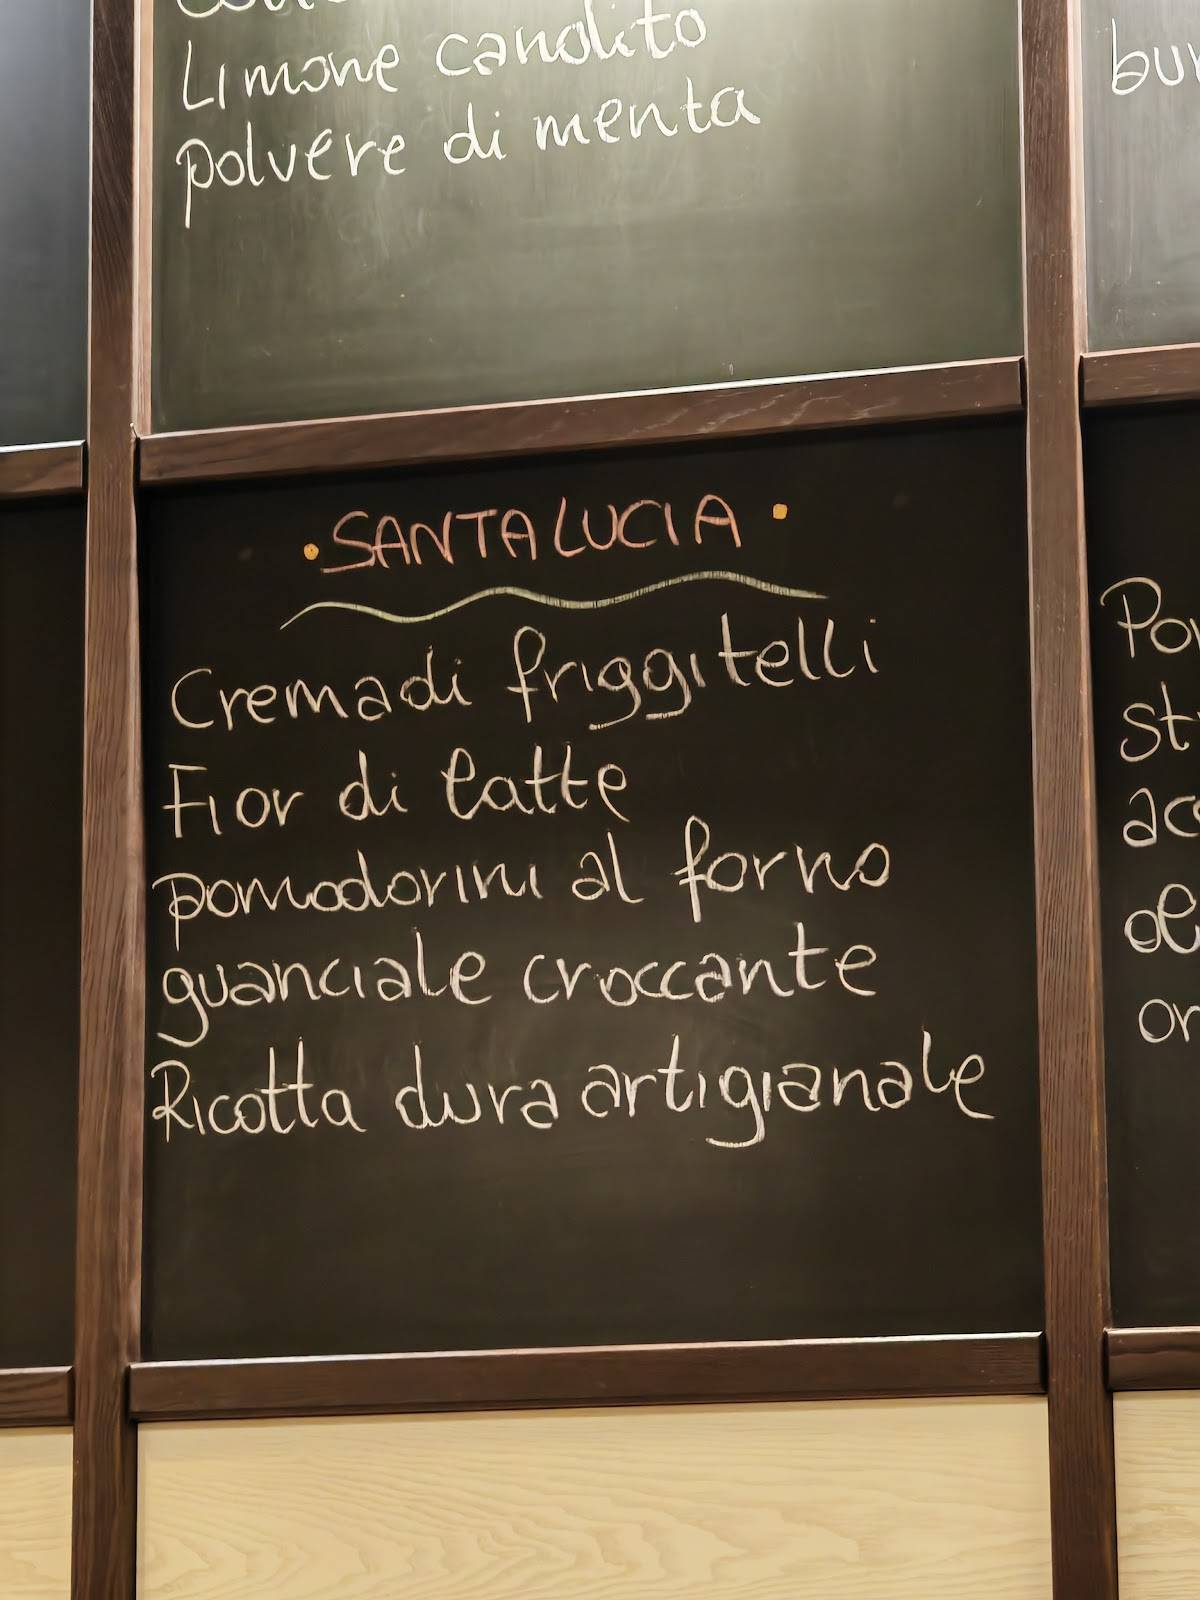 Limone candito
polvere di menta
bur
• SANTA LUCIA •
Crema di friggitelli
Fior di latte
pomodorini al forno
guanciale croccante
Ricotta dura artigianale